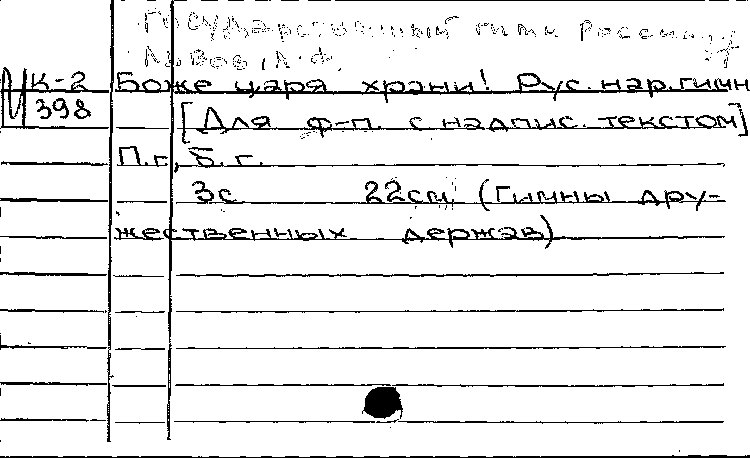 Государственный гимн России
Львов, А.Ф.
К-2 Боже царя храни! Рус. нар. гимн
398 [Для ф-п. с надпис. текстом]
П.г., б.г.
3с 22см. (Гимны дру-
жественных держав)